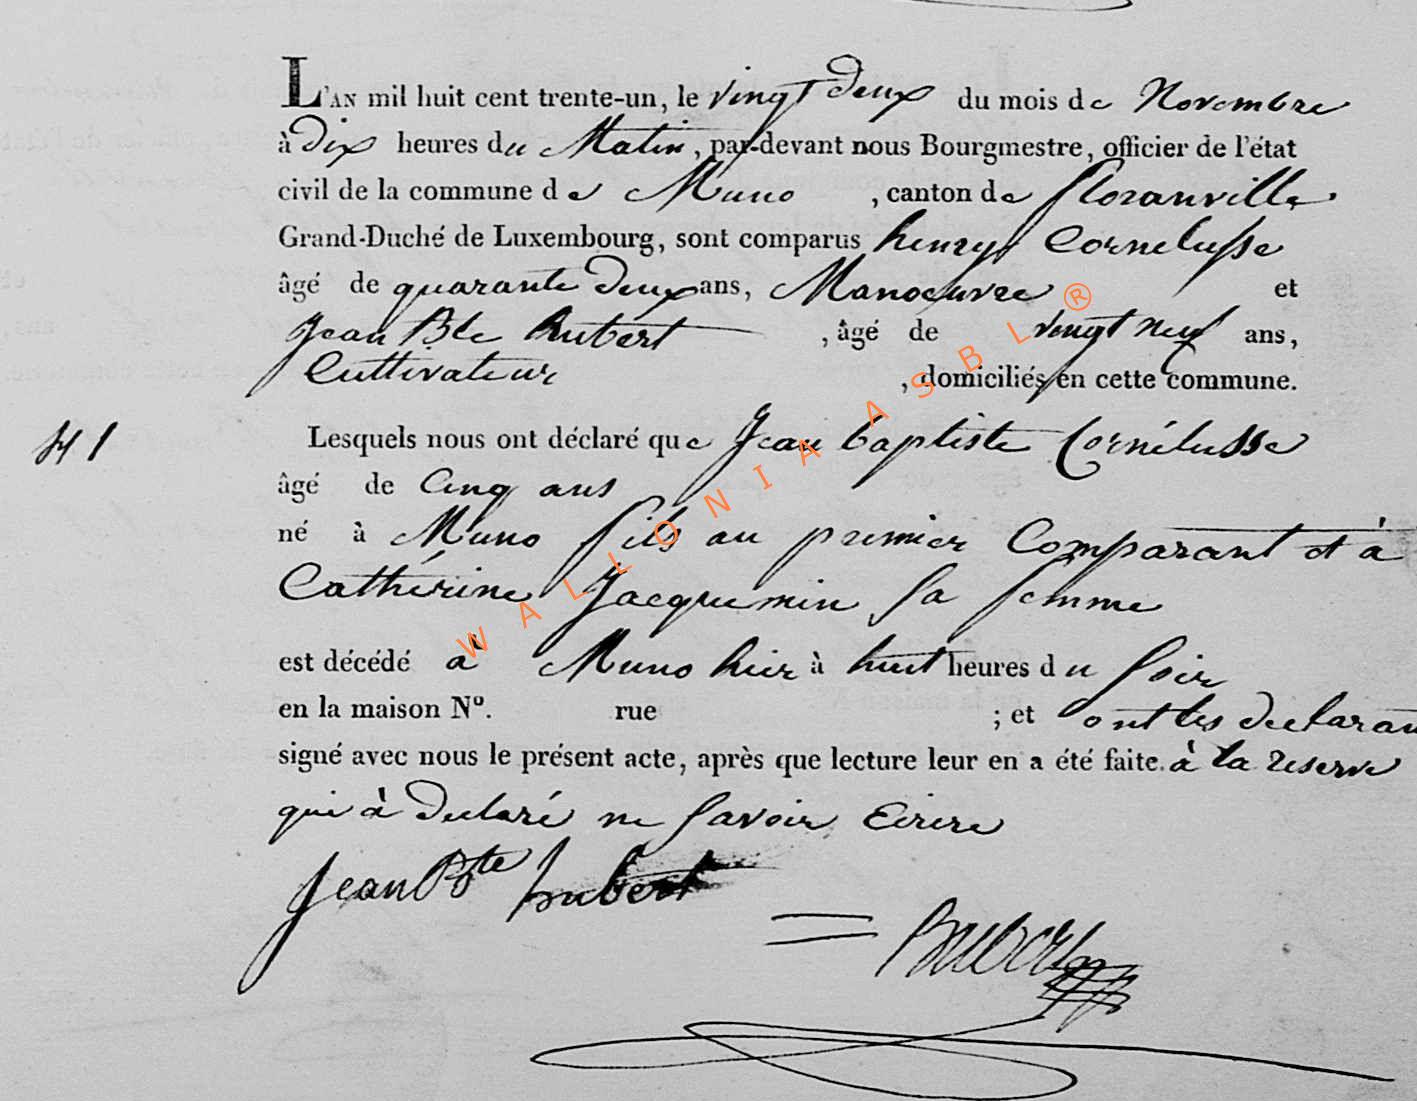 L'AN mil huit cent trente-un, le vingt deux du mois de Novembre
à Dix heures du Matin, par-devant nous Bourgmestre, officier de l'état
civil de la commune de Muno, canton de floranville
Grand-Duché de Luxembourg, sont comparus henry Cornelusse
âgé de quarante Deux ans, Manoeuvre et
Jean Bte hubert, âgé de vingt neuf ans,
Cultivateur, domiciliés en cette commune.
41
Lesquels nous ont déclaré que Jean baptiste Cornélusse
âgé de Cinq ans
né à Muno fils au premier Comparant et à
Cathérine Jacquemin sa femme
est décédé à Muno hier à huit heures du soir
en la maison Nº. rue ; et ont les declaran
signé avec nous le présent acte, après que lecture leur en a été faite. à la reserve
qui à Declaré ne savoir Ecrire
Jean Bte hubert
WALLONIA ASBL ®